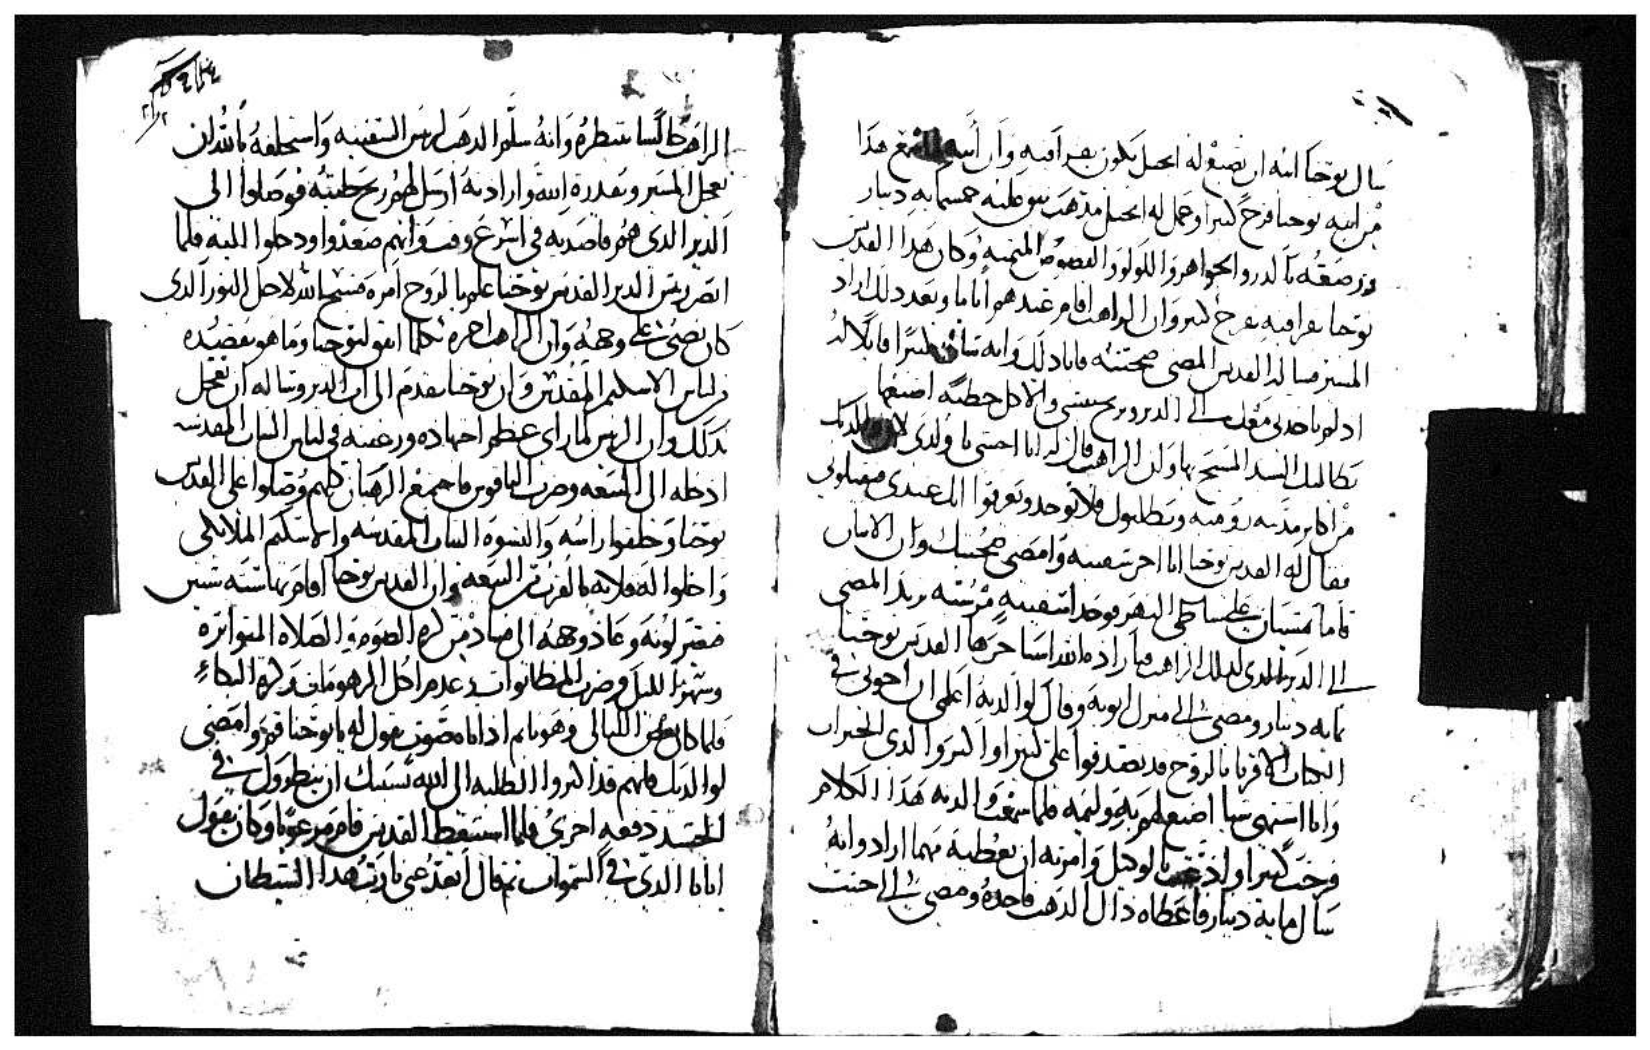 سال يوحنا ابيه ان يصنع له انجيل يكون يقرا فيه وان ابيه لما سمع هذا
من ابنه يوحنا فرح كثيرا وعمل له انجيل مذهب بيوقلنه خمسمايه دينار
ورصعه بالدر والجواهر واللولو والفصوص المثمنه وكان هذا القديس
يوحنا يقرا فيه بفرح كثير وان الراهب اقام عندهم اياما وبعد ذلك اراد
المسير فساله القديس المضي صحبته فابا ذلك وانه كثيرا قايلا له
ان لم ياخدني معك الى الدير ويريح نفسي والا كل خطيه اصنعها
يطالبك السيد المسيح بها وان الراهب قال له انا اخشى يا ولدي لان والديك
من اكابر مدينه روميه ويطلبوك فلا يوجد ويعرفوا انك عندي فيقتلوني
فقال له القديس يوحنا انا اخرج بمعرفه وامضي صحبتك وان الاثنان
قاما يمشيان على شاطي البحر فوجدا سفينه مرسيه تريد المضي
الى الدير الذي لذلك الراهب فاراده انه اساجرها القديس يوحنا
بمايه دينار ومضى الى منزل ابويه وقال لوالديه اعلمي ان اخوتي في
الكتاب الاقربا بالروح قد تصدقوا علي كثيرا واكثروا لدي الخيرات
وانا اشتهي شيا اصنع لهم به وليمه فلما سمعت والديه هذا الكلام
فرحت كثيرا واذعت بالوكيل وامرته ان يعطيه مهما اراد وانه
سال مايه دينار فاعطاه ذلك الذهب فاخده ومضى الى حيث
الراهب جالسا ينتظره وانه سلم الذهب لريس السفينه واستحلفه بالله ان
يعجل المسير وبقدرة الله وارادته ارسل لهم ريح طيبه فوصلوا الى
الدير الذي هم قاصديه في اسرع وقت وانهم صعدوا ودخلوا اليه فلما
ابصر ريس الدير القديس يوحنا علم بالروح امره فسبح الله لاجل النور الذي
كان يضي على وجهه وان الراهب اخبره بكلما اتفق ليوحنا وما هو بقصيده
من لباس الاسكيم المقدس وان يوحنا تقدم الى اب الدير وساله ان يعجل
بذلك وان الريس لما راى عظم اجتهاده ورغبته في لباس الثياب المقدسه
ادخله الى البيعه وضرب الناقوس فاجتمع الرهبان كلهم وصلوا على القديس
يوحنا وحلقوا راسه والبسوه الثياب المقدسه والاسكيم الملايكي
واخلوا له قلايه بالقرب من البيعه وان القديس يوحنا اقام بها سته سنين
فتغير لونه وعاد وجهه الى صار من كثرة الصوم والصلاه المتواتره
وسهر الليل وضرب المطانوات وعدم اكل الزهومات وكثرة البكاء
فلما كان بعض الليالي وهو نايم اذ اتاه صوت يقول له يا يوحنا قم وامضي
لوالديك فانهم قد اكثروا الطلبه الى الله بسببك ان ينظروك في
الجسد دفعه اخرى فلما استيقظ القديس قام مرعوبا وكان يقول
ابانا الذي في السموات ثم قال ابعد عني يا رب هذا الشيطان